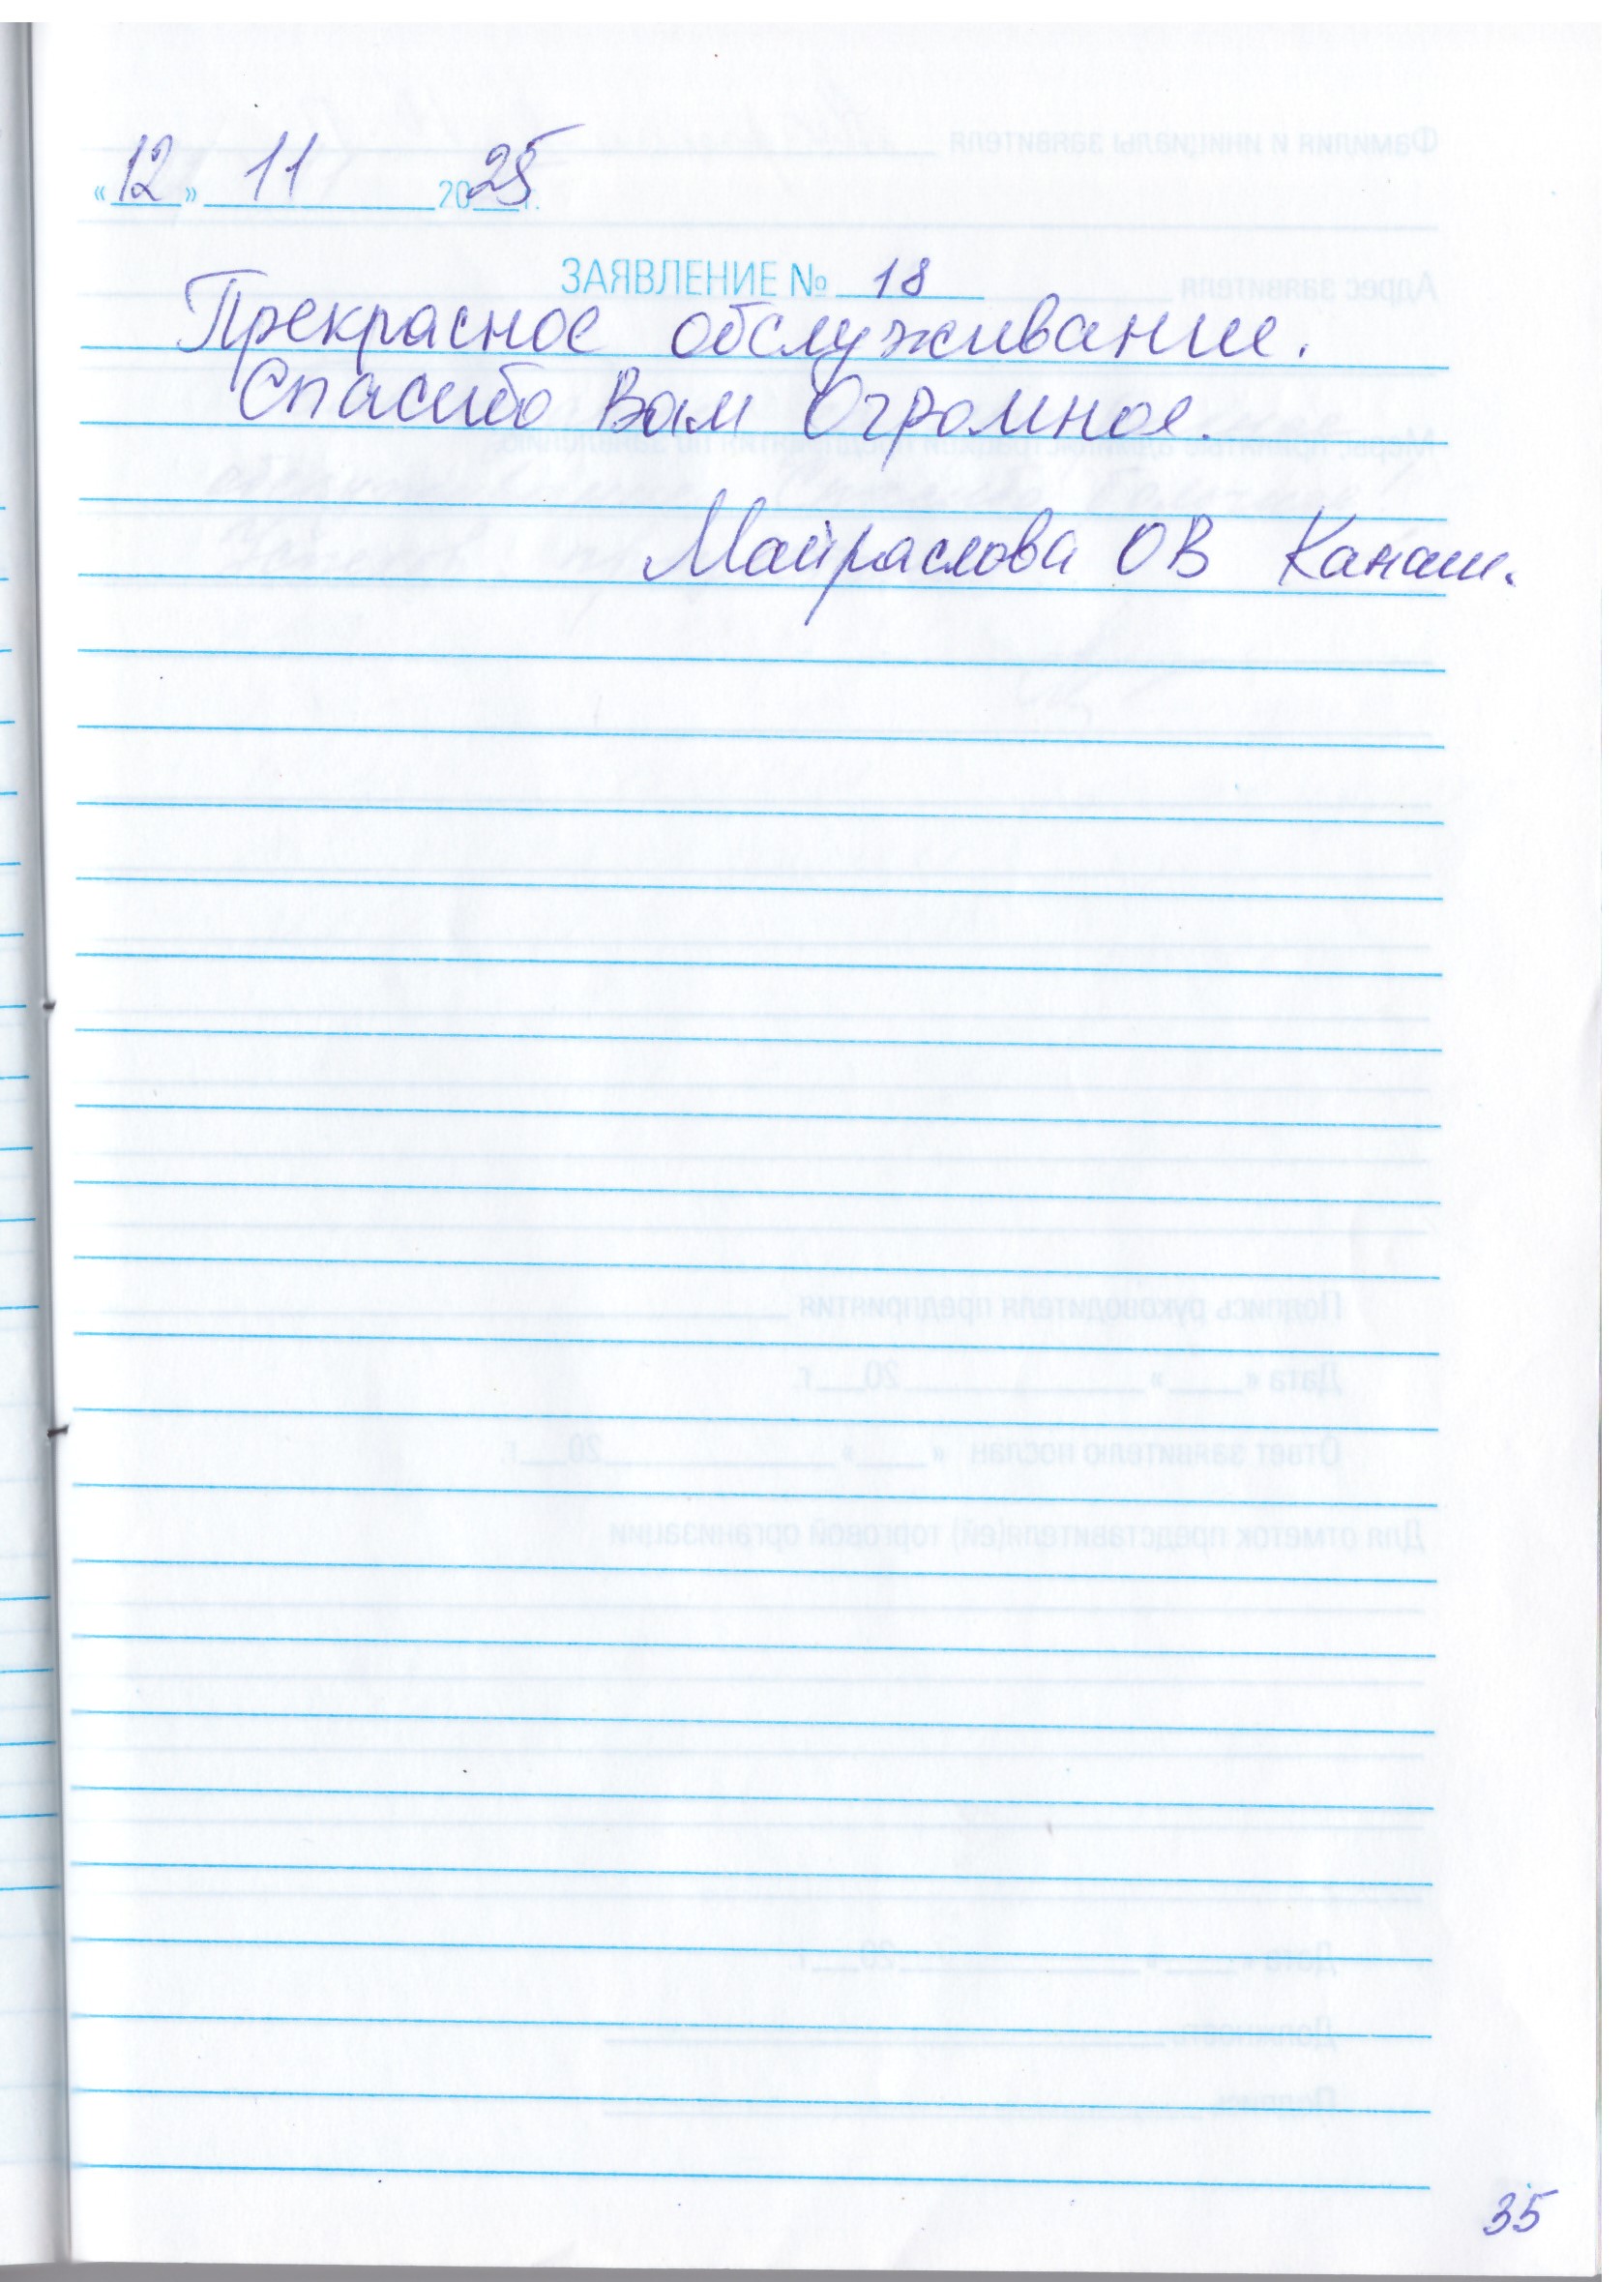 «12» 11 2025 г.
ЗАЯВЛЕНИЕ № 18
Прекрасное обслуживание.
Спасибо Вам Огромное.
Майраслова ОВ Канаш.
35